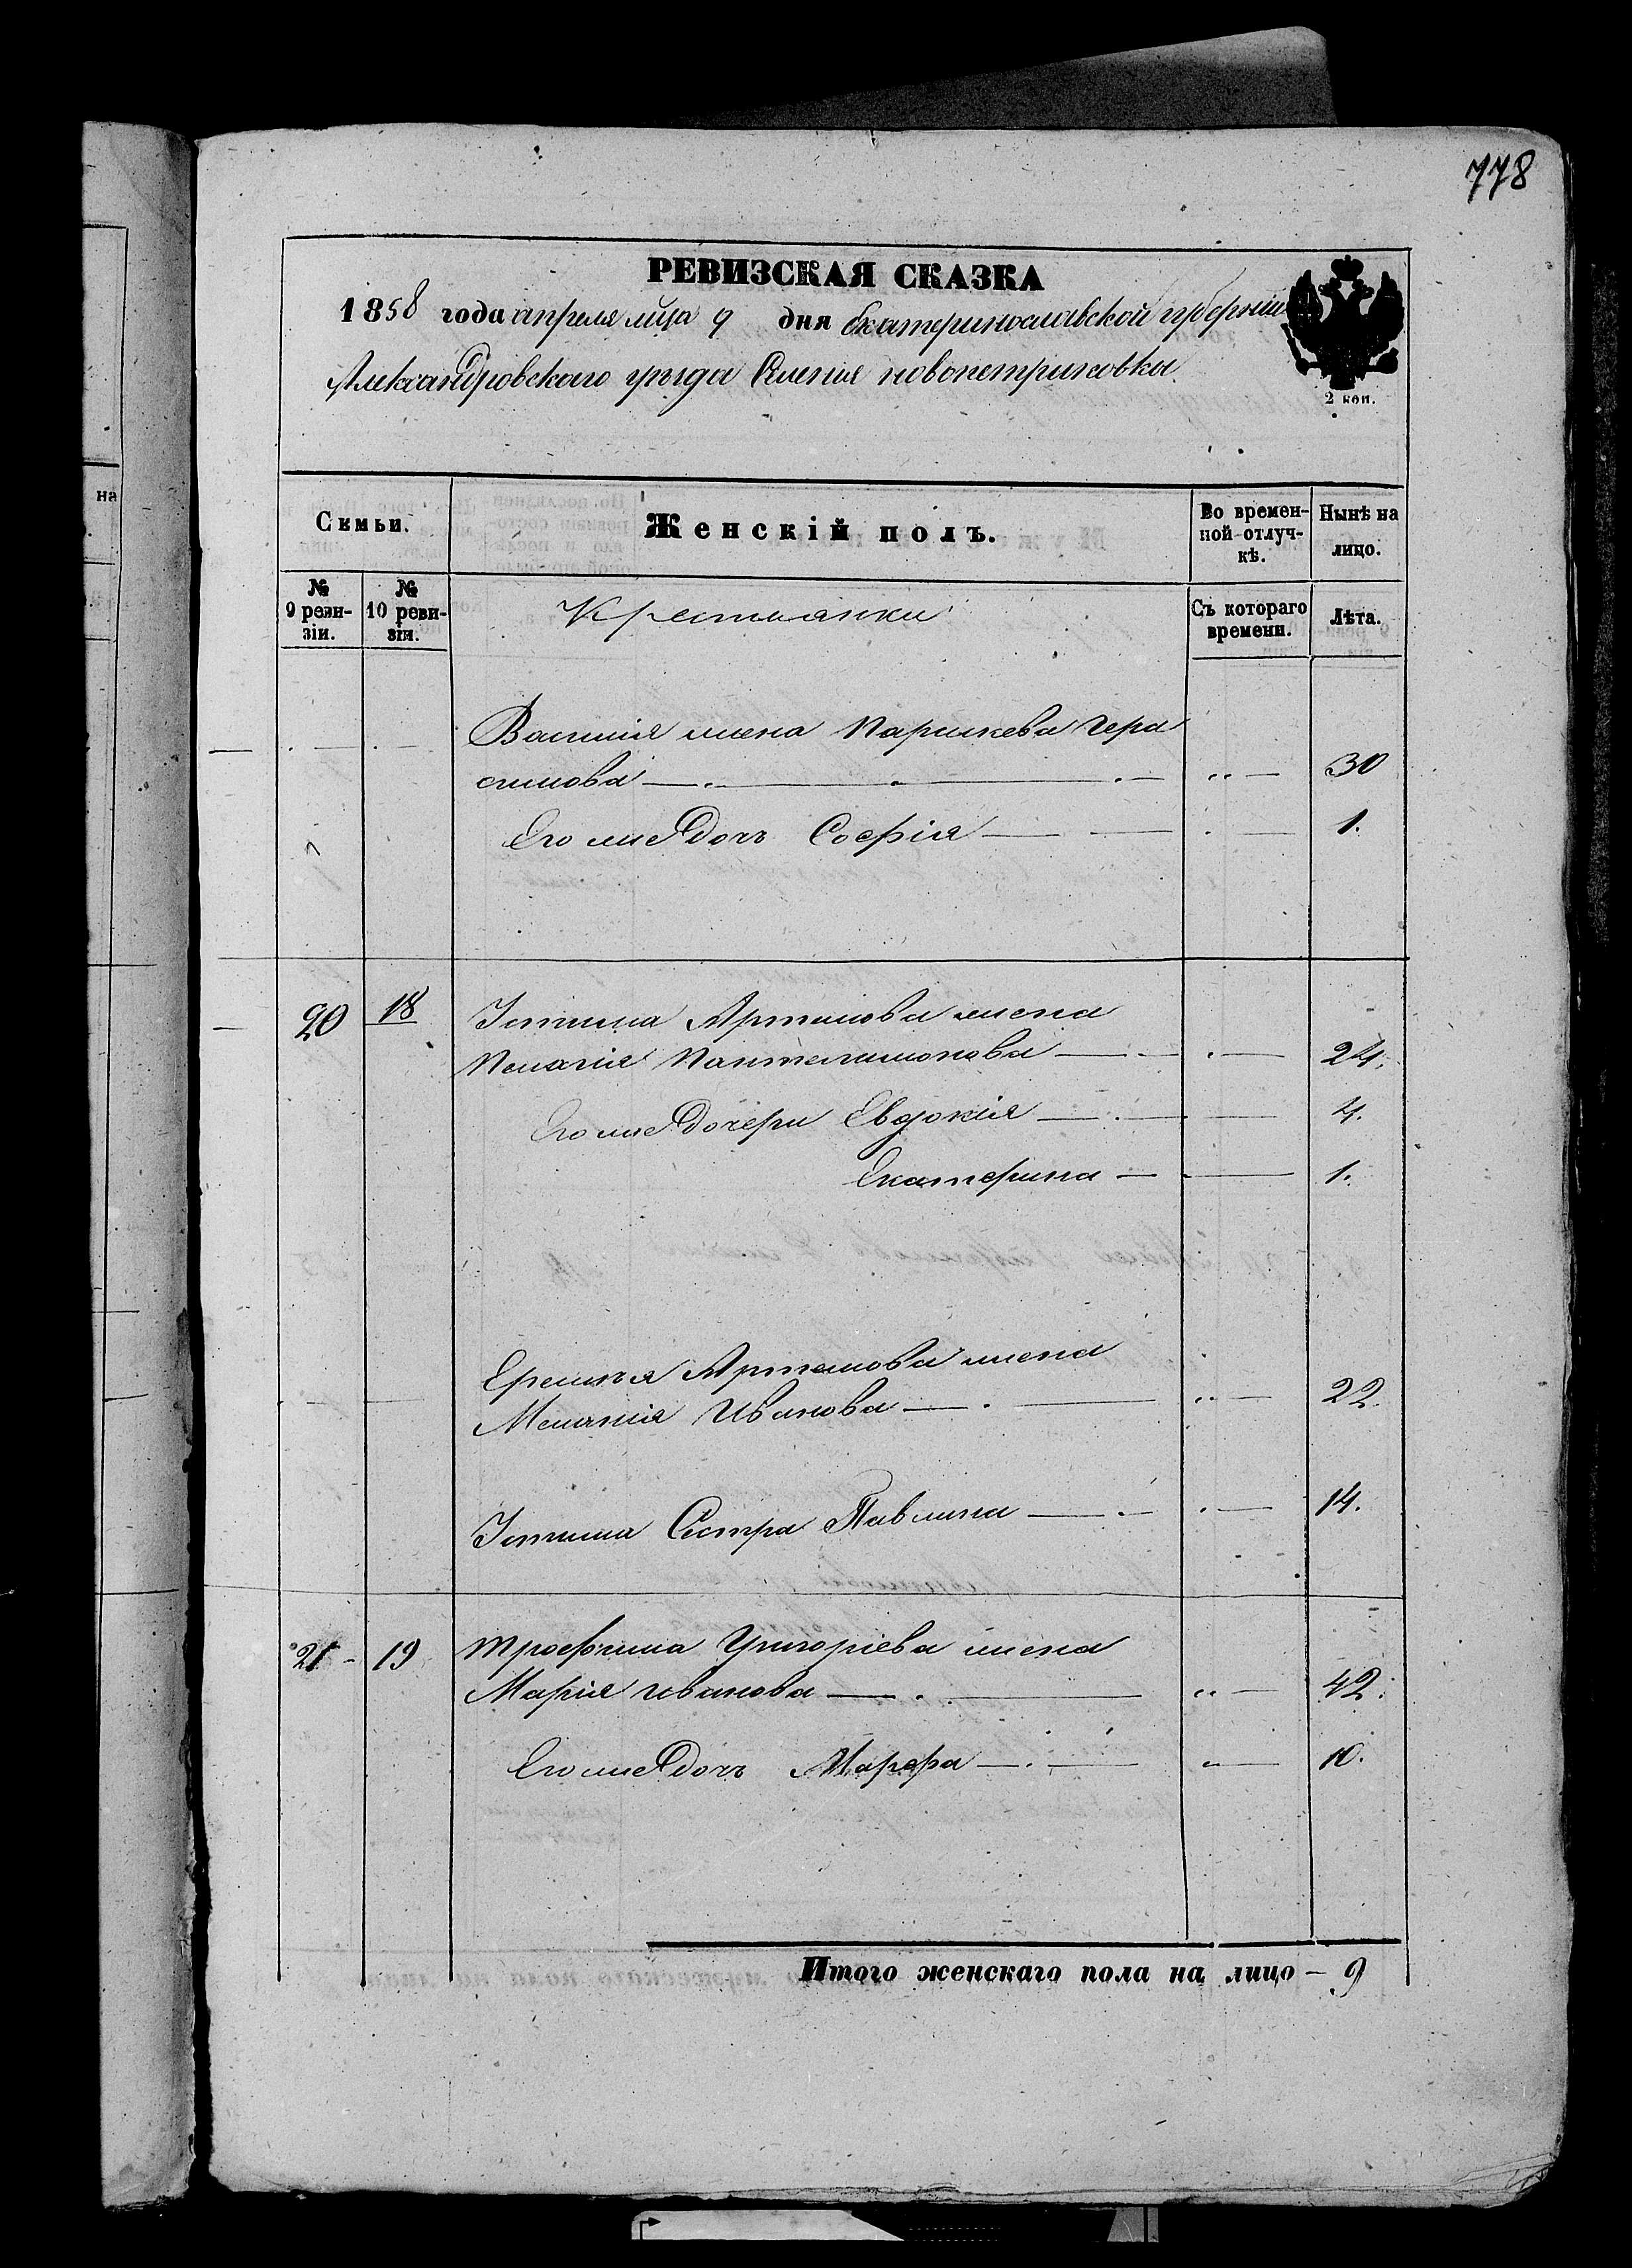 778
РЕВИЗСКАЯ СКАЗКА
1858 года апреля мца 9 дня Екатеринославской губернии
Александровского уезда Имения новопетриковки
2 коп.
на
Семьи.
Женскій полъ.
Во времен-
ной отлуч-
кѣ.
Нынѣ на
лицо.
№
9 реви-
зіи.
№
10 реви-
зіи.
Крестьянки
Съ котораго
времени.
Лѣта.
Василія жена Парискева Гера
симова — 30
Его же Дочь Софія — 1.
20 18 Устина Артемова жена
Пелагія Пантелимонова — 24.
Его же Дочери Евдокія — 4.
Екатерина — 1.
Еремея Артемова жена
Меланія Иванова — 22.
Устина Сестра Павлина — 14.
21 - 19 Трофима Григоріева жена
Марія иванова — 42.
Его же Дочь Марфа — 10.
Итого женскаго пола на лицо — 9